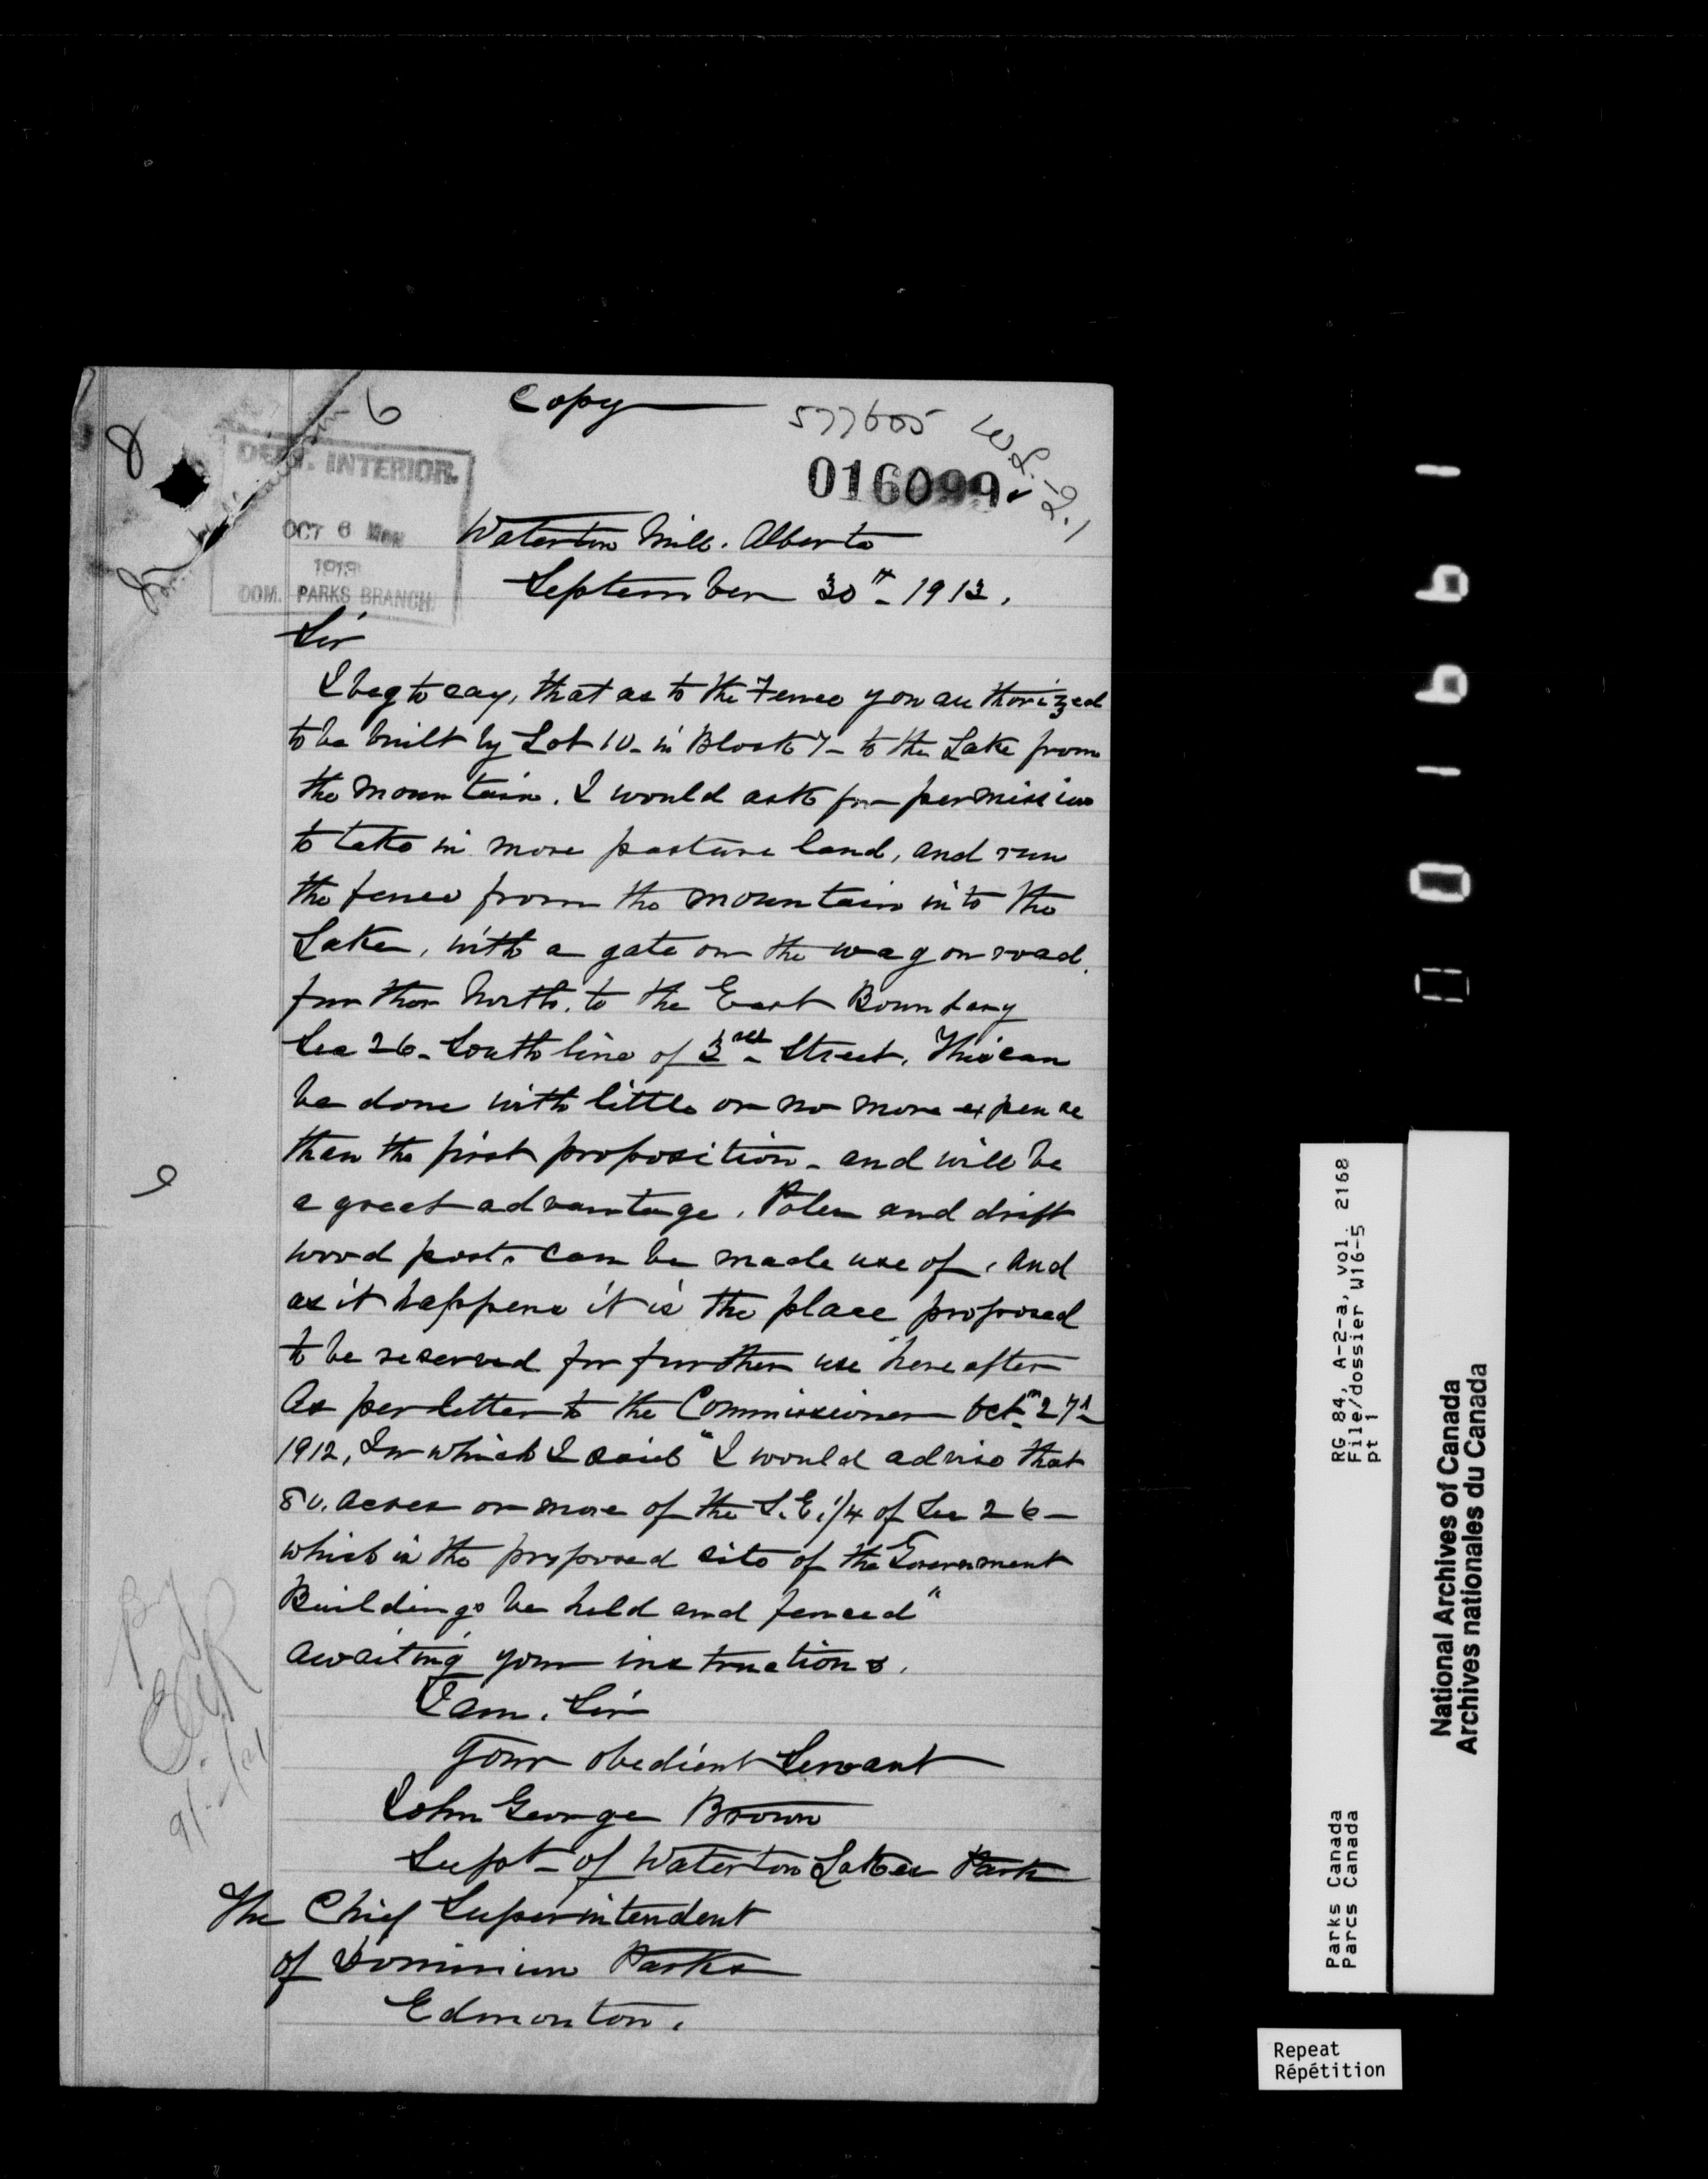 Copy
6
577605
W2.16.1
016099
DEPT. INTERIOR.
OCT 6 1913
DOM. PARKS BRANCH
Waterton Mills. Alberta
September 30th - 1913.
Sir
I beg to say, that as to the Fence you authorized
to be built by Lot 10 - in Block 7 - to the Lake from
the mountain. I would ask for permission
to take in more pasture land, and run
the fence from the mountain into the
Lake, with a gate on the wagon road.
further North. to the East Boundary
Sec 26 - South line of 3rd - Street. This can
be done with little or no more expense
than the first proposition - and will be
a great advantage. Poles and drift
wood posts can be made use of, and
as it happens it is the place proposed
to be reserved for further use hereafter
As per letter to the Commissioner Oct - 27th -
1912, In which I said "I would advise that
80. acres or more of the S.E. 1/4 of Sec 26 -
which is the proposed site of the Government
Buildings be held and fenced"
awaiting your instructions.
I am. Sir
Your obedient Servant
John George Brown
Supt - of Waterton Lakes Park
The Chief Superintendent
of Dominion Parks
Edmonton.
RG 84, A-2-a, vol. 2168
File/dossier W16-5
pt 1
Parks Canada
Parcs Canada
National Archives of Canada
Archives nationales du Canada
Repeat
Répétition